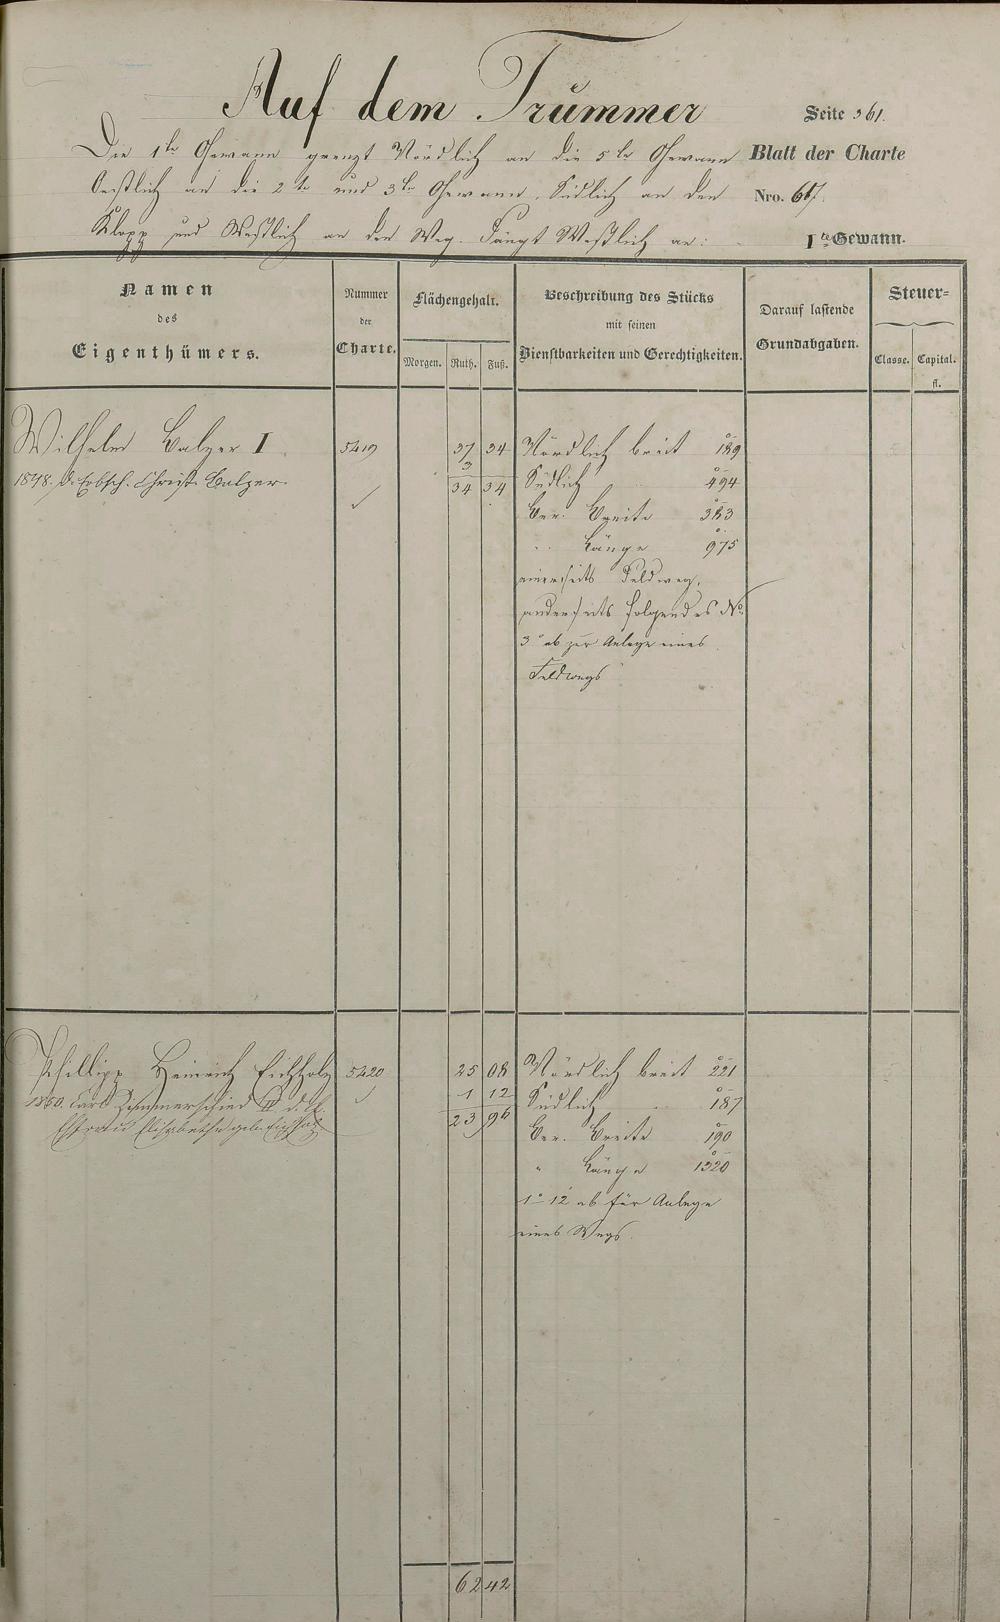 Auf dem Trümmer
Seite 361.
Die 1te Gewann grenzt Nördlich an die 5te Gewann
Blatt der Charte
Oestlich an die 2te und 3te Gewann, Südlich an den
Nro. 67.
Klopp und Westlich an den Weg. Fängt Westlich an:
1te Gewann.
Namen des Eigenthümers.
Nummer der Charte.
Flächengehalt.
Morgen. Ruth. Fuß.
Beschreibung des Stücks
mit seinen
Dienstbarkeiten und Gerechtigkeiten.
Darauf lastende
Grundabgaben.
Steuer=
Classe. Capital.
fl.
Wilhelm Balzer I 5419 37 34 Nördlich breit 189
3
1878. d. Erbsch. Christ. Balzer 34 34 Südlich 494
Ver. Breite 383
" Länge 975
einerseits Feldweg,
anderseits folgendes No.
3° ab zur Anlage eines
Feldwegs
Phillipp Heinrich Eichholz 5420 25 08 Nördlich breit 221
1860. Carl Zimmerschied II d. d. 1 12 Südlich 187
Ehefrau Elisabethe geb. Eichholz 23 96 Ver. Breite 190
" Länge 1320
1° 12 ab für Anlage
eines Wegs.
62 42